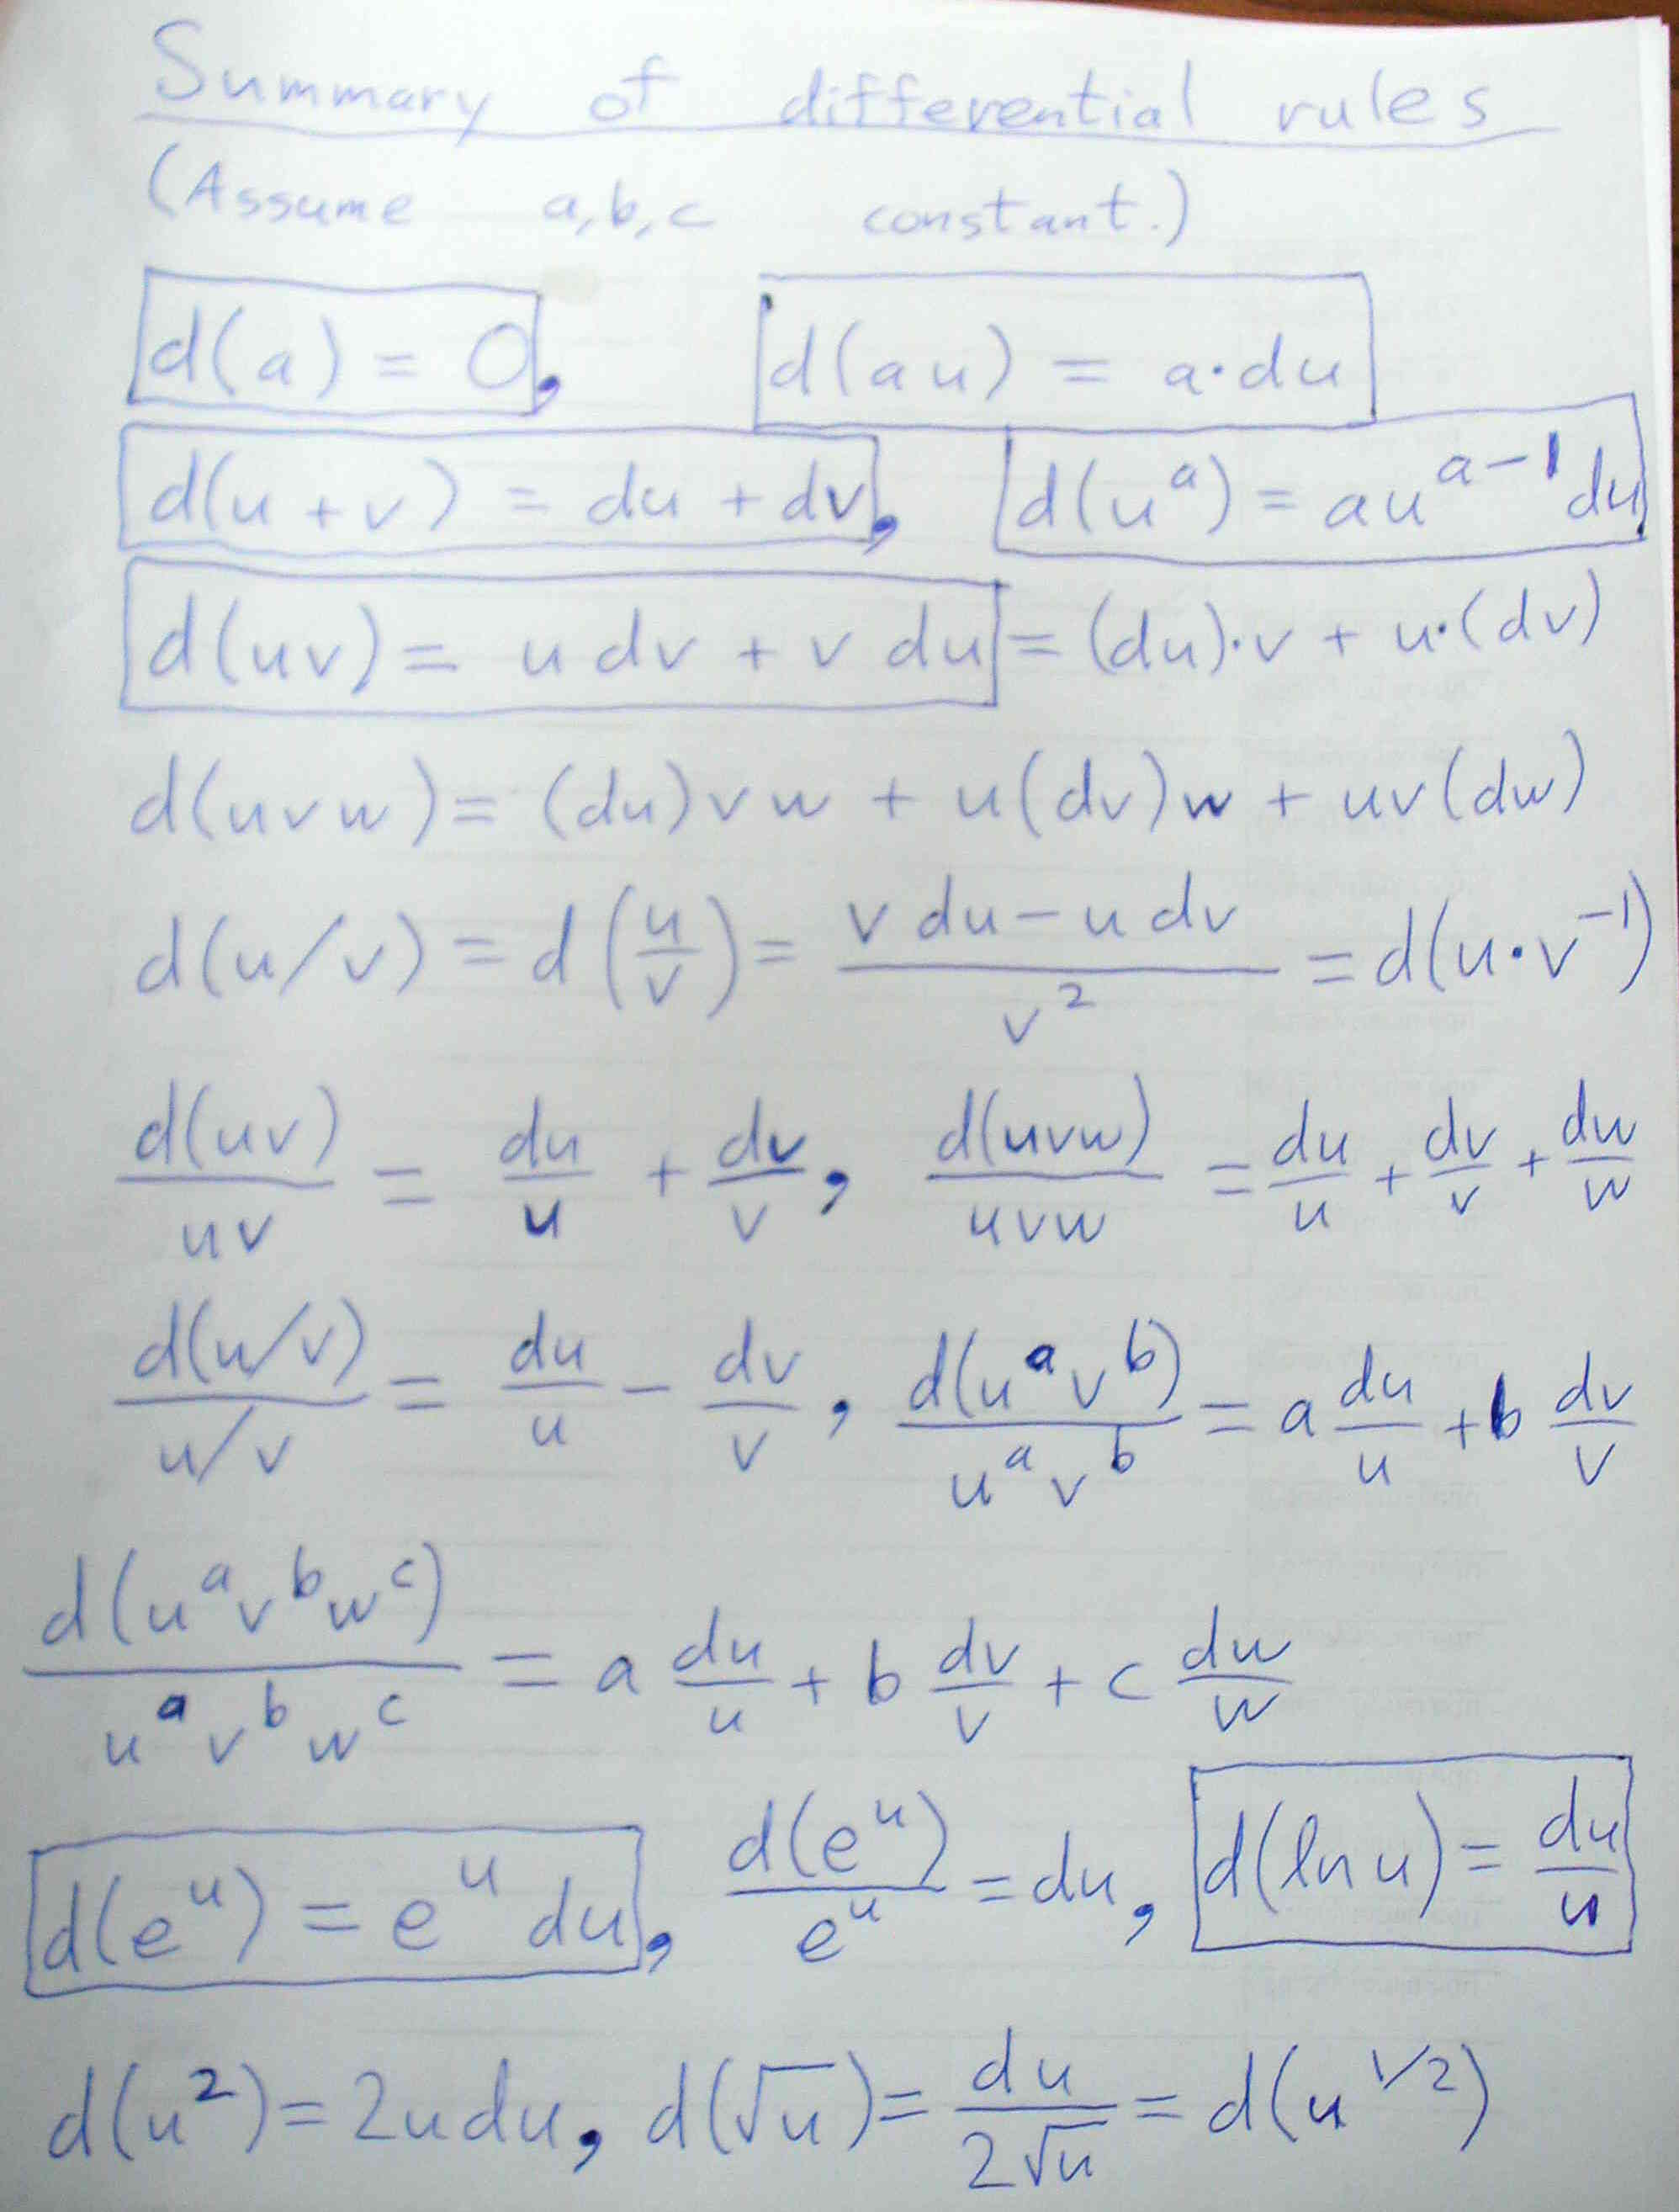 Summary of differential rules
(Assume a, b, c constant.)
d(a) = 0, d(au) = a·du
d(u + v) = du + dv, d(u^a) = au^(a-1) du
d(uv) = u dv + v du = (du)·v + u·(dv)
d(uvw) = (du)vw + u(dv)w + uv(dw)
d(u/v) = d(u/v) = (v du − u dv)/v² = d(u·v⁻¹)
d(uv)/uv = du/u + dv/v, d(uvw)/uvw = du/u + dv/v + dw/w
d(u/v)/(u/v) = du/u − dv/v, d(u^a v^b)/(u^a v^b) = a du/u + b dv/v
d(u^a v^b w^c)/(u^a v^b w^c) = a du/u + b dv/v + c dw/w
d(e^u) = e^u du, d(e^u)/e^u = du, d(ln u) = du/u
d(u²) = 2u du, d(√u) = du/(2√u) = d(u^(1/2))